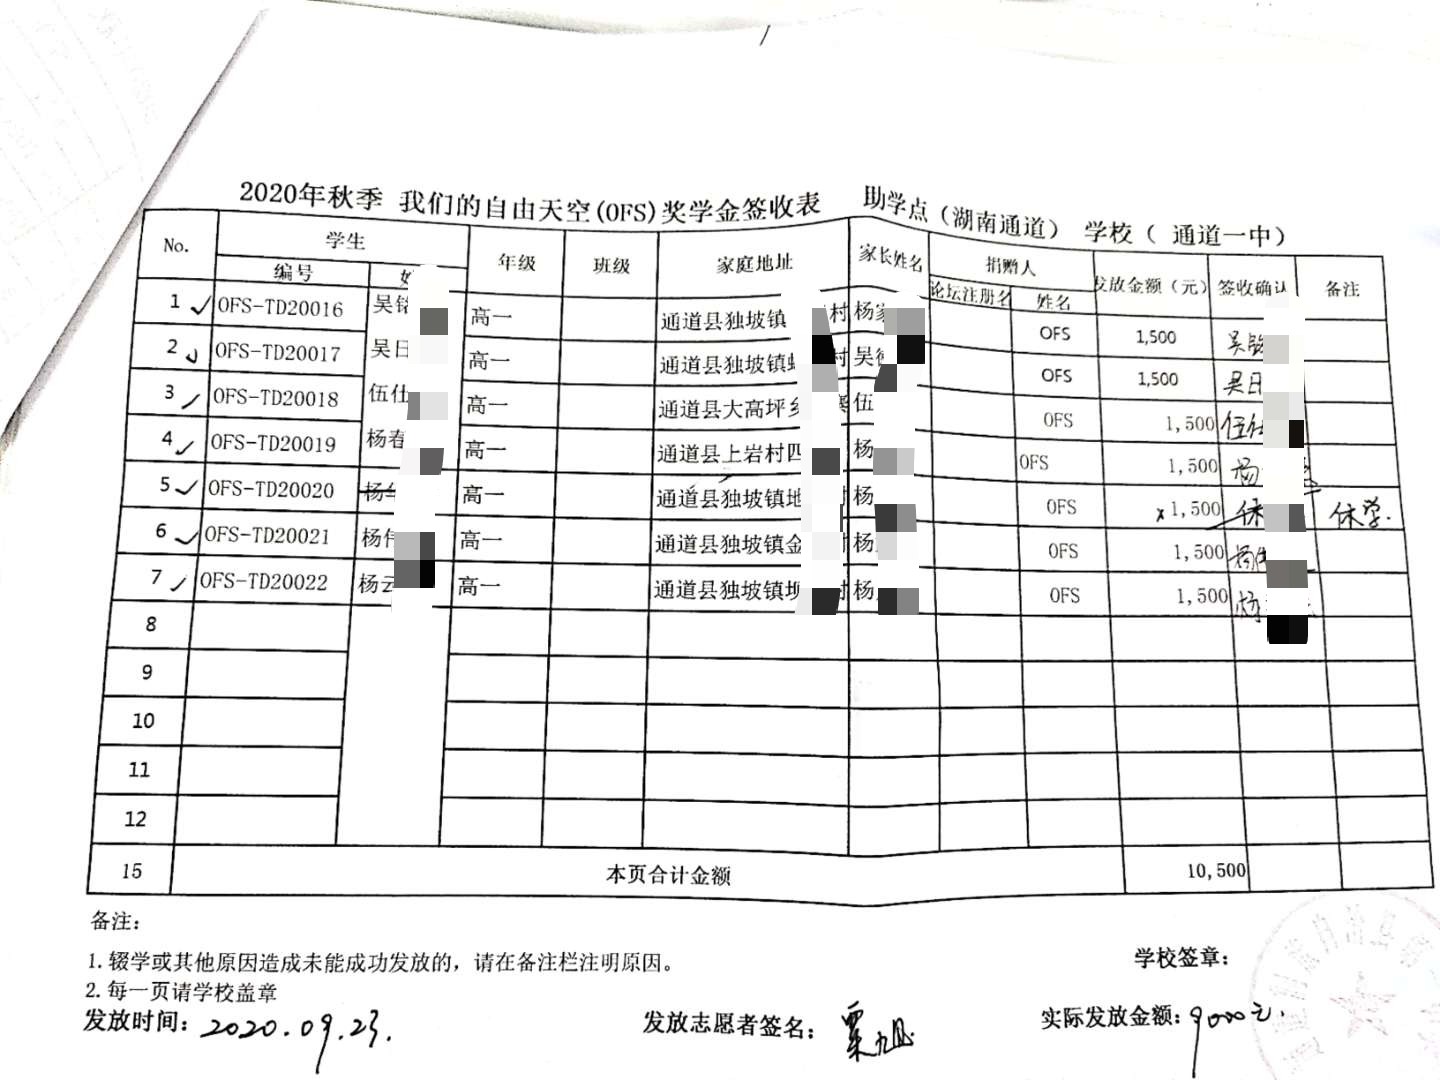 2020年秋季 我们的自由天空(OFS)奖学金签收表 助学点（湖南通道） 学校（ 通道一中）
No. 学生 年级 班级 家庭地址 家长姓名 捐赠人 发放金额（元） 签收确认 备注
编号 论坛注册名 姓名
1 OFS-TD20016 吴 高一 通道县独坡镇 村 杨 OFS 1,500 吴
2 OFS-TD20017 吴日 高一 通道县独坡镇 村 吴 OFS 1,500 吴日
3 OFS-TD20018 伍仕 高一 通道县大高坪乡 伍 OFS 1,500 伍仕
4 OFS-TD20019 杨春 高一 通道县上岩村四 杨 OFS 1,500 杨
5 OFS-TD20020 杨 高一 通道县独坡镇地 村 杨 OFS x 1,500 休 休学.
6 OFS-TD20021 杨伟 高一 通道县独坡镇金 村 杨 OFS 1,500 杨伟
7 OFS-TD20022 杨云 高一 通道县独坡镇坝 村 杨 OFS 1,500 杨
8
9
10
11
12
15 本页合计金额 10,500
备注：
1. 辍学或其他原因造成未能成功发放的，请在备注栏注明原因。
学校签章：
2. 每一页请学校盖章
发放时间：2020.09.23. 发放志愿者签名： 粟 实际发放金额：9000元.